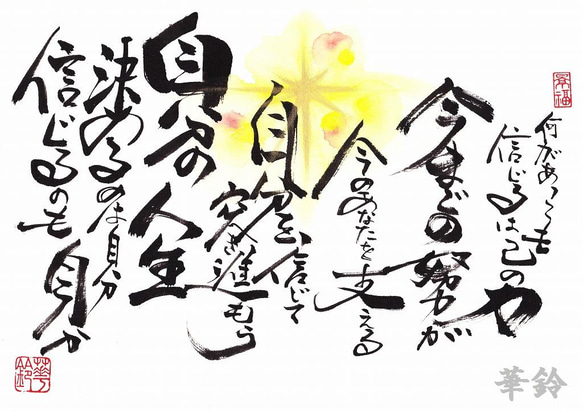 何があっても
信じるは己の力
今までの努力が
今のあなたを支える
自分を信じて
突き進もう
自分の人生
決めるのは自分
信じるのも自分
幸福
華鈴
華鈴